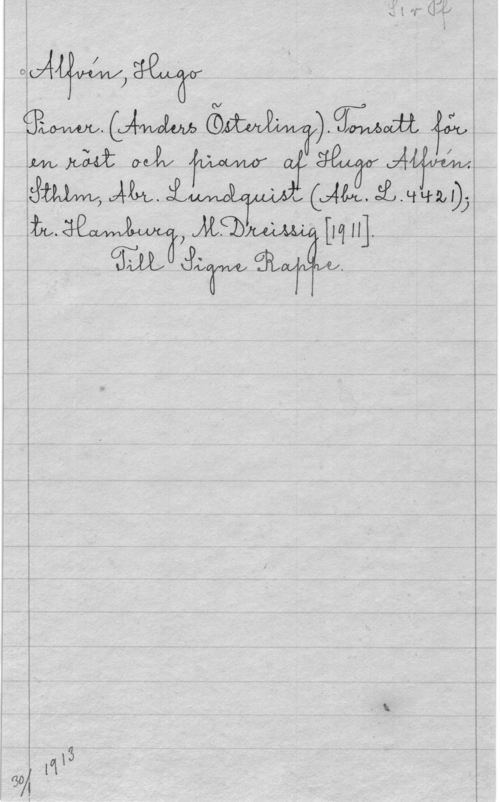 S 1 v Pf
Alfvén, Hugo
Pioner. (Anders Österling). Tonsatt för
en röst och piano af Hugo Alfvén.
Sthlm, Abr. Lundquist (Abr. L. 4421);
tr. Hamburg, M. Dreissig [1911].
Till Signe Rappe.
30/1 1913